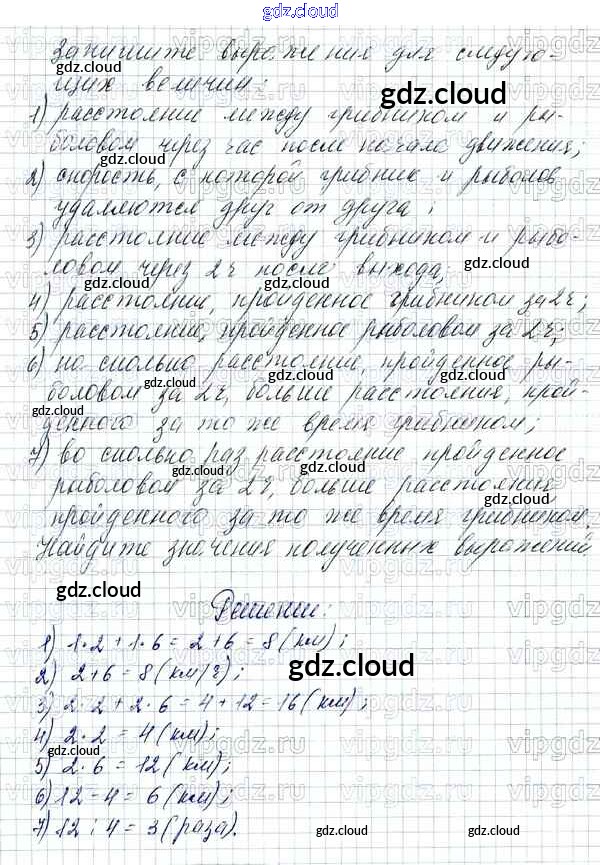 gdz.cloud
Запишите выражения для следую-
щих величин:
1) расстояние между грибником и ры-
боловом через час после начала движения;
2) скорость, с которой грибник и рыболов
удаляются друг от друга;
3) расстояние между грибником и рыбо-
ловом через 2 ч после выхода;
4) расстояние, пройденное грибником за 2 ч;
5) расстояние, пройденное рыболовом за 2 ч;
6) на сколько расстояние, пройденное ры-
боловом за 2 ч, больше расстояния, прой-
денного за то же время грибником;
7) во сколько раз расстояние пройденное
рыболовом за 2 ч, больше расстояния
пройденного за то же время грибником.
Найдите значения полученных выражений
gdz.cloud
Решение:
1) 1·2 + 1·6 = 2 + 6 = 8 (км);
2) 2 + 6 = 8 (км/ч);
3) 2·2 + 2·6 = 4 + 12 = 16 (км);
4) 2·2 = 4 (км);
5) 2·6 = 12 (км);
6) 12 - 4 = 6 (км);
7) 12 : 4 = 3 (раза).
gdz.cloud gdz.cloud